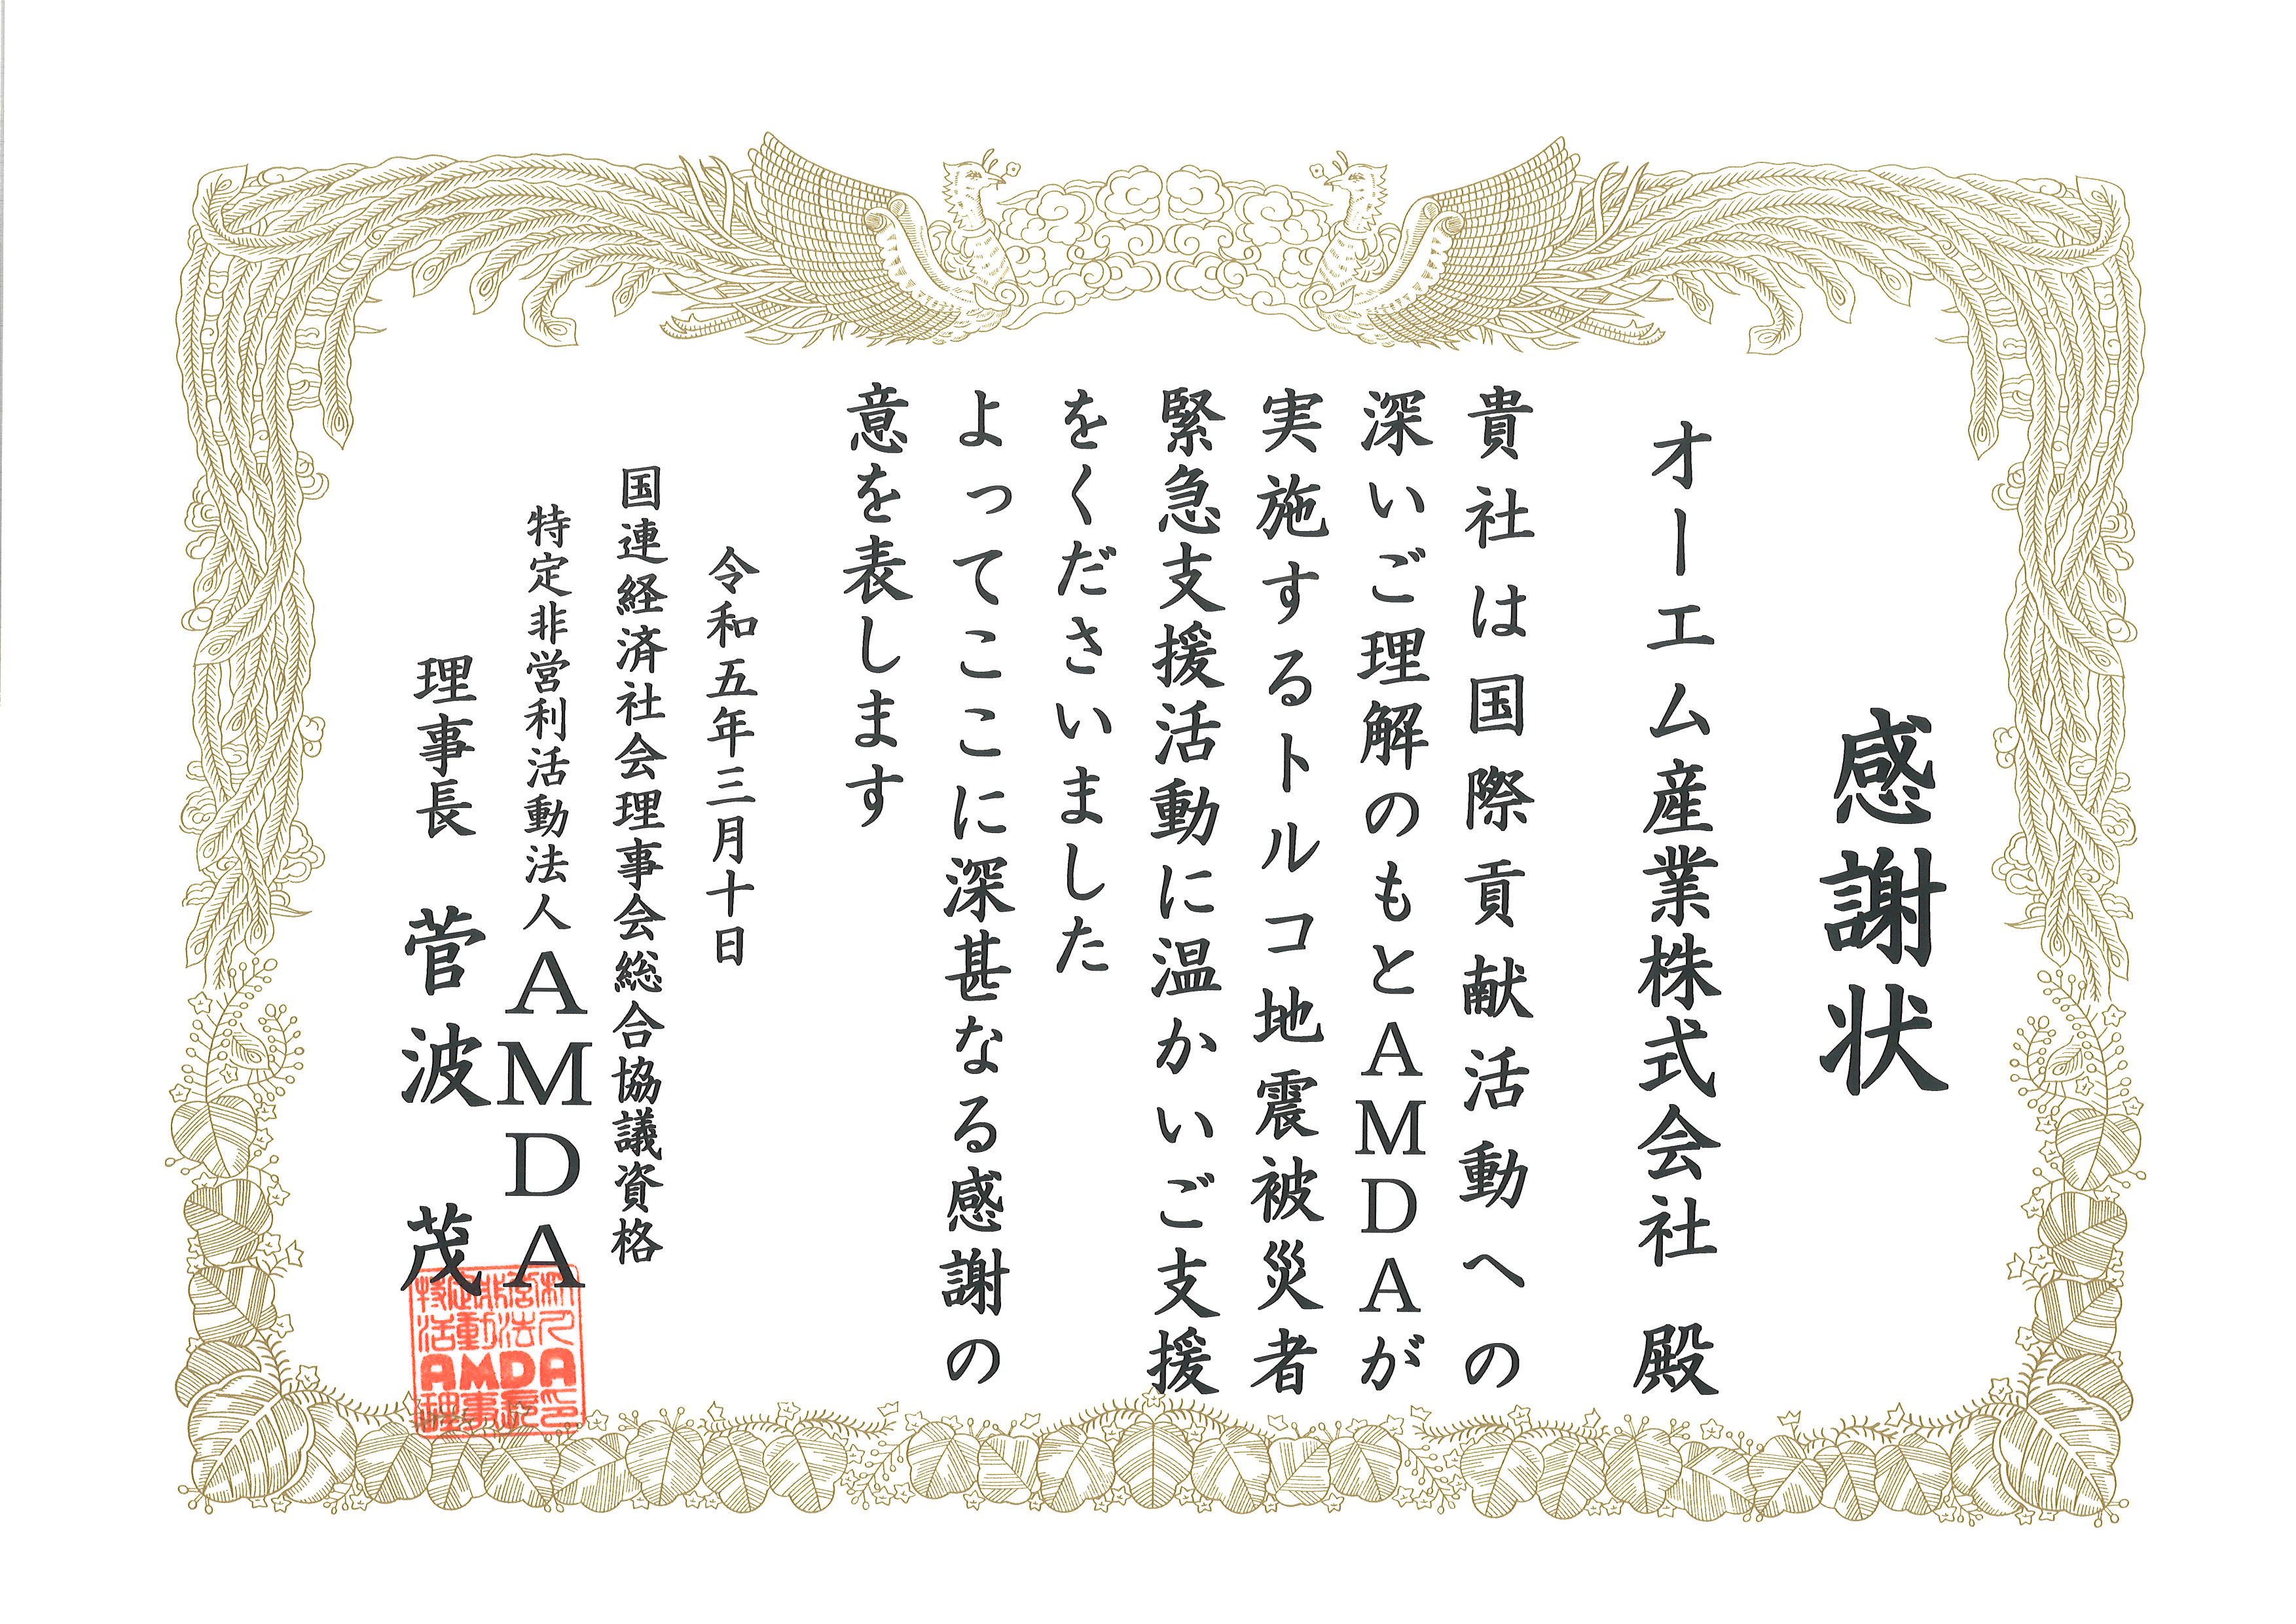 感謝状
オーエム産業株式会社 殿
貴社は国際貢献活動への
深いご理解のもとAMDAが
実施するトルコ地震被災者
緊急支援活動に温かいご支援
をくださいました
よってここに深甚なる感謝の
意を表します
令和五年三月十日
国連経済社会理事会総合協議資格
特定非営利活動法人AMDA
理事長 菅波 茂
特定非営利
活動法人
AMDA
理事長印